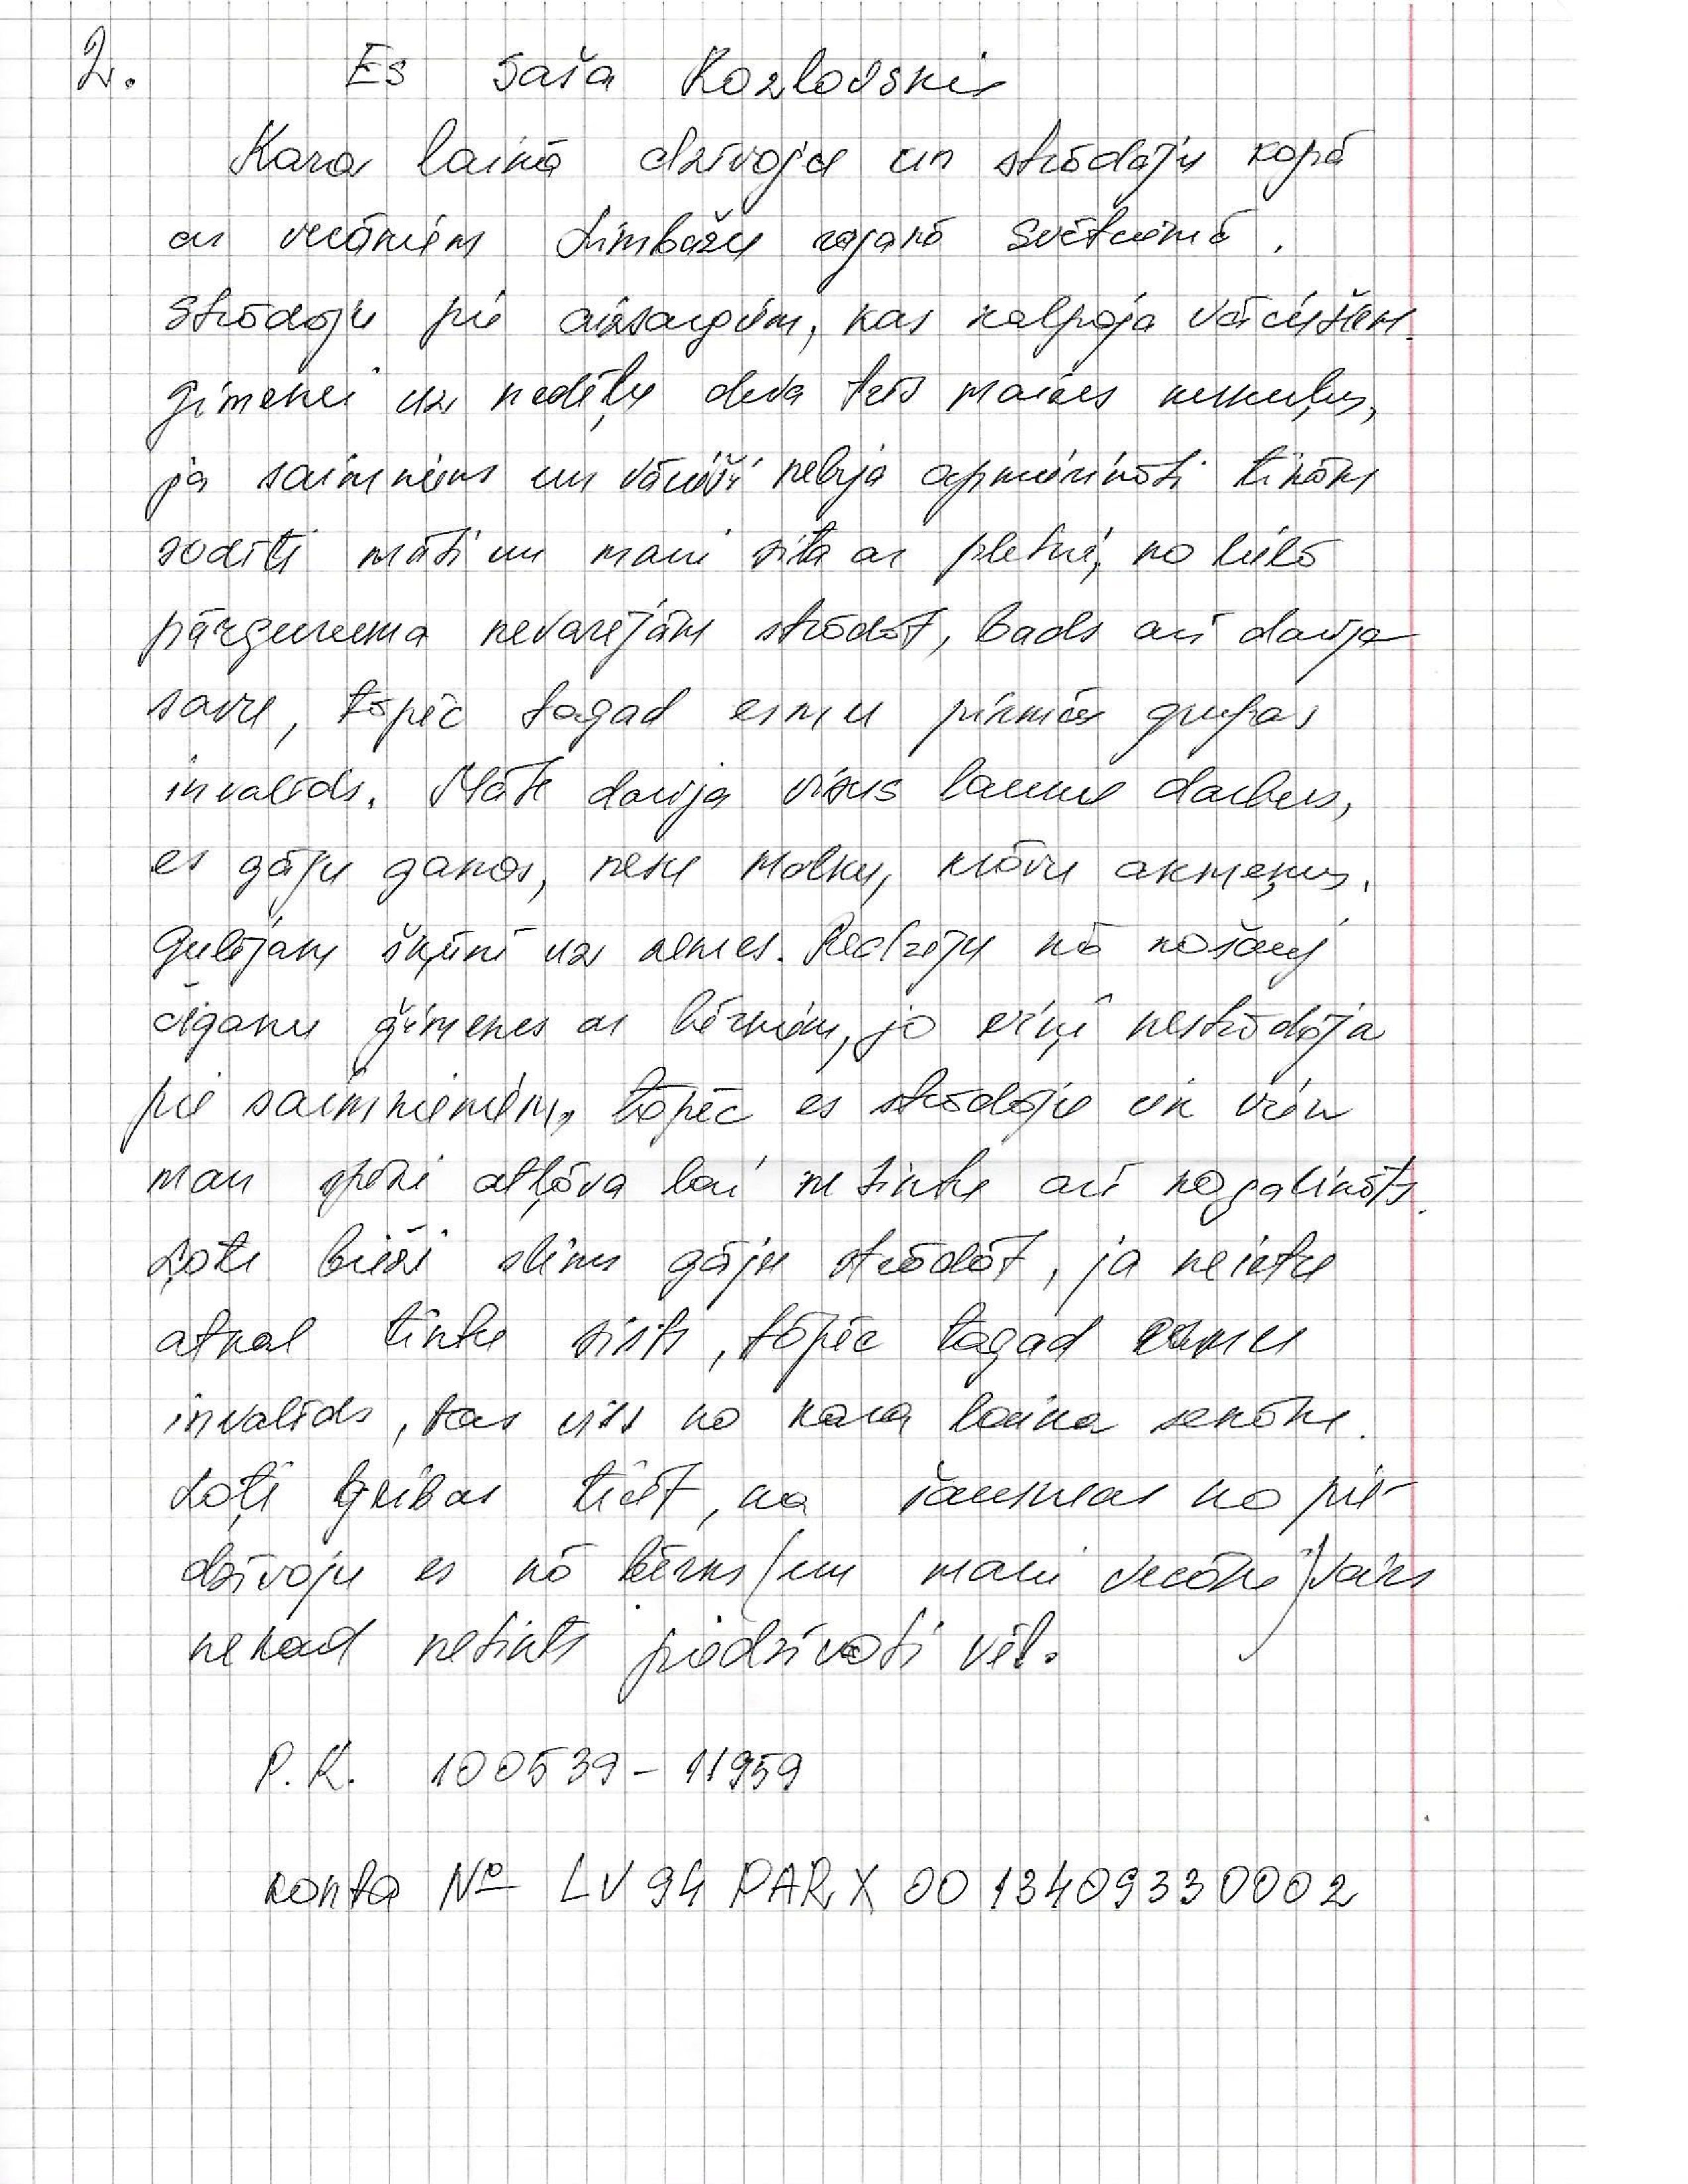 2. Es Saša Kozlovskis
Kara laikā dzīvoju un strādāju kopā
ar vecākiem Limbažu rajonā Svētciemā.
Strādāju pie aizsargiem, kas kalpoja vāciešiem.
ģimenei uz nedēļu deva trīs maizes kukuļus,
ja saimnieks un vācieši nebija apmierināti tikām
sodīti māti un mani sita ar pletni, no lielā
pārguruma nevarējām strādāt, bads arī darīja
savu, tāpēc tagad esmu pirmās grupas
invalīds. Māte darīja visus lauku darbus,
es gāju ganos, nesu malku, krāvu akmeņus.
Gulējām šķūnī uz zemes. Redzēju kā nošauj
čigānu ģimenes ar bērniem, jo viņi nestrādāja
pie saimniekiem, tāpēc es strādāju cik vien
man spēki atļāva lai ne tiktu arī nogalināts.
Ļoti bieži slims gāju strādāt, ja neietu
atkal tiktu sists, tāpēc tagad esmu
invalīds, tas viss no kara laika sekām.
Ļoti gribas ticēt, ka šausmas ko pie-
dzīvoju es kā bērns (un mani vecāki) vairs
nekad netiks piedzīvoti vēl.
P.K. 100539-11959
konta № LV 94 PARX 00 13409330002